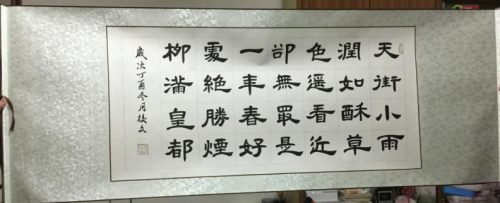 天街小雨
潤如酥草
色遥看近
卻無最是
一年春好
處絶勝煙
柳滿皇都
歲次丁酉冬月後文